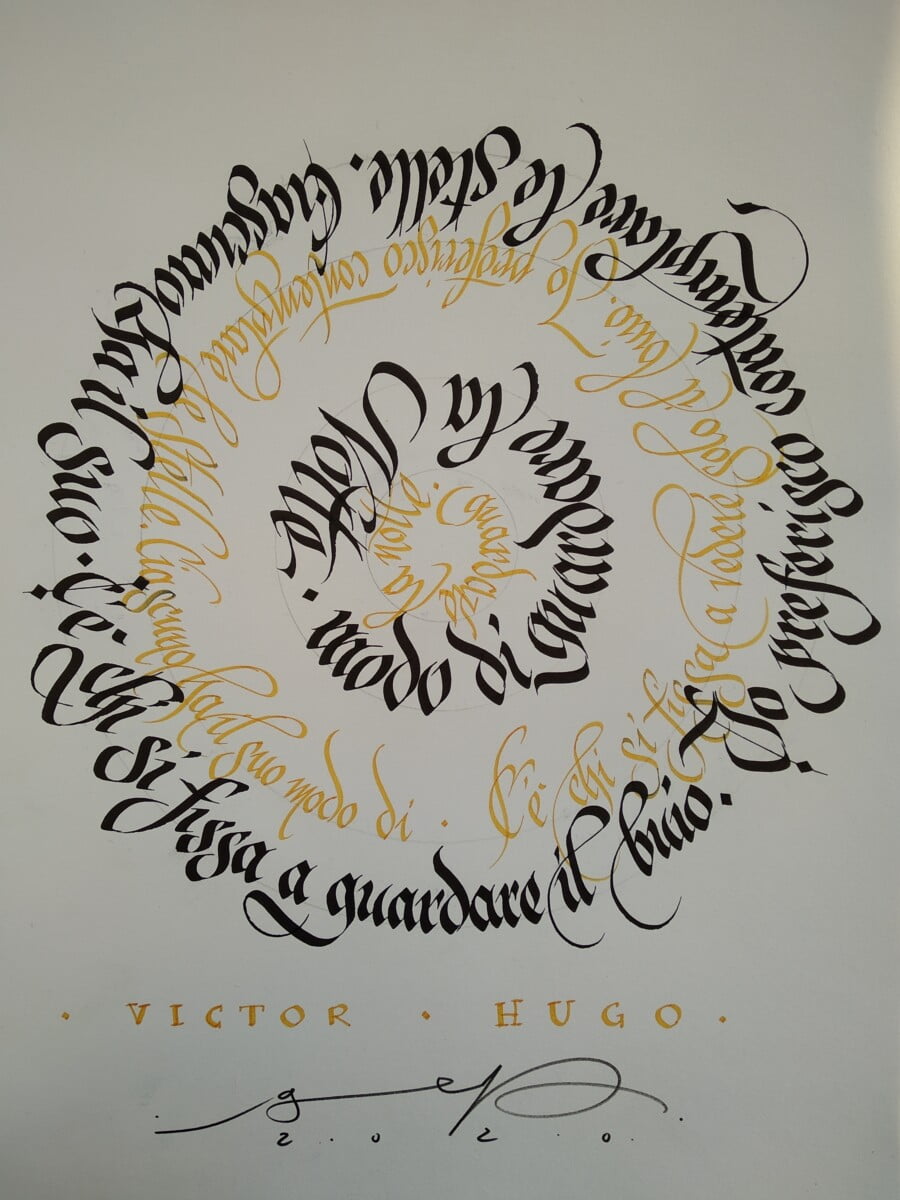 C'è chi si fissa a guardare il buio. Io preferisco contemplare le stelle. Ciascuno ha il suo.
modo di guardare la Notte.
C'è chi si fissa a vedere solo il buio. Io preferisco contemplare le stelle. Ciascuno ha il suo modo di .
guardare la Notte.
· VICTOR · HUGO ·
gep
2 . 0 2 . 0 .